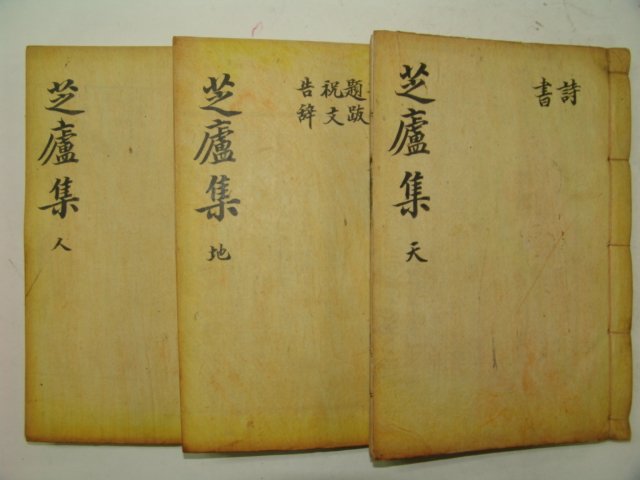 詩
書
芝廬集
天
題跋
祝文
告辭
芝廬集
地
芝廬集
人